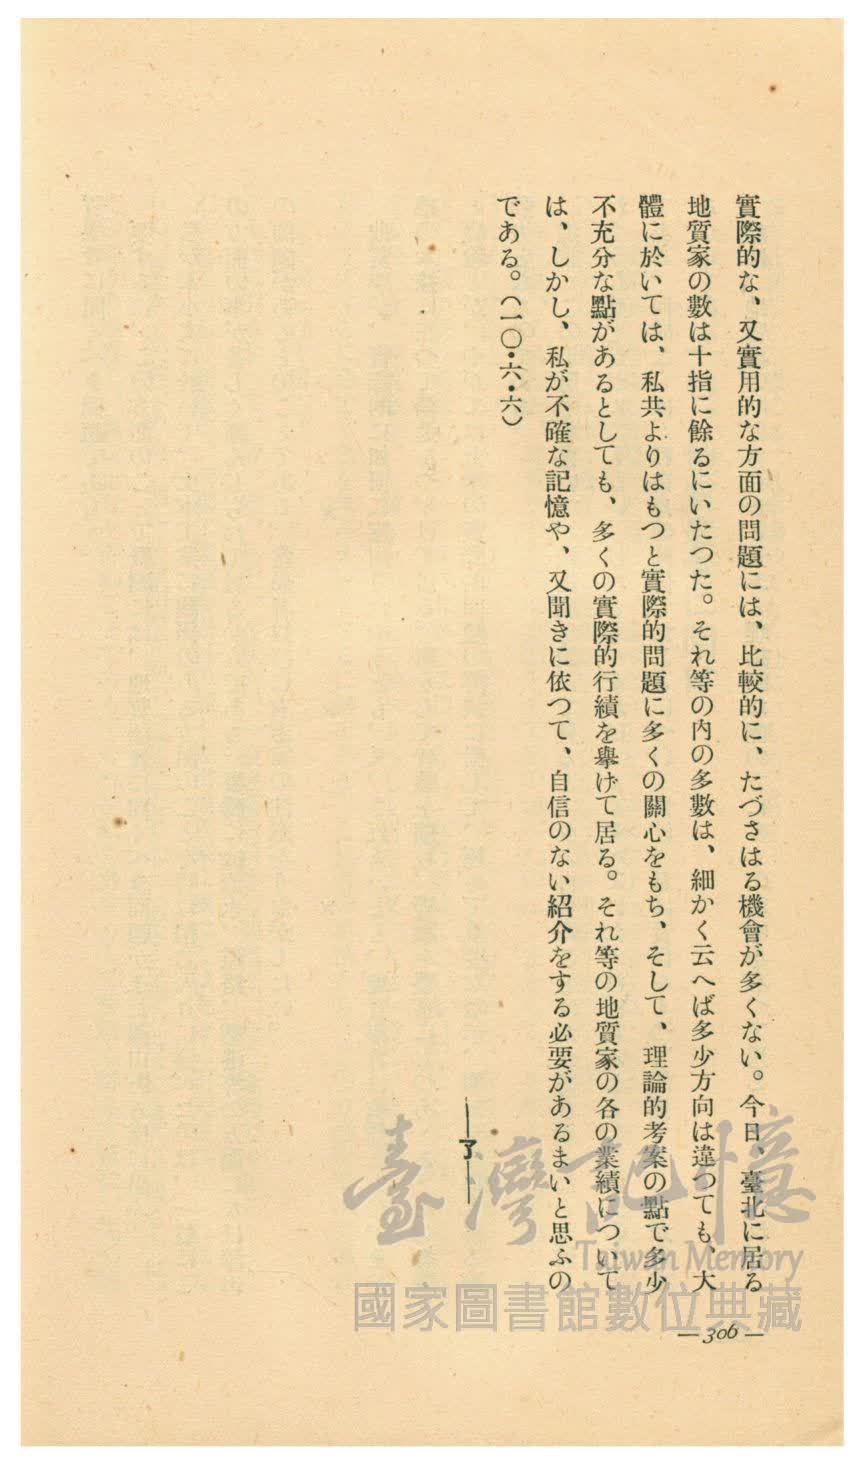 實際的な、又實用的な方面の問題には、比較的に、たづさはる機會が多くない。今日、臺北に居る
地質家の數は十指に餘るにいたつた。それ等の内の多數は、細かく云へば多少方向は違つても、大
體に於いては、私共よりはもつと實際的問題に多くの關心をもち、そして、理論的考案の點で多少
不充分な點があるとしても、多くの實際的行績を擧げて居る。それ等の地質家の各の業績について
は、しかし、私が不確な記憶や、又聞きに依つて、自信のない紹介をする必要があるまいと思ふの
である。(一〇・六・六)
—了—
臺灣記憶
Taiwan Memory
國家圖書館數位典藏
— 306 —